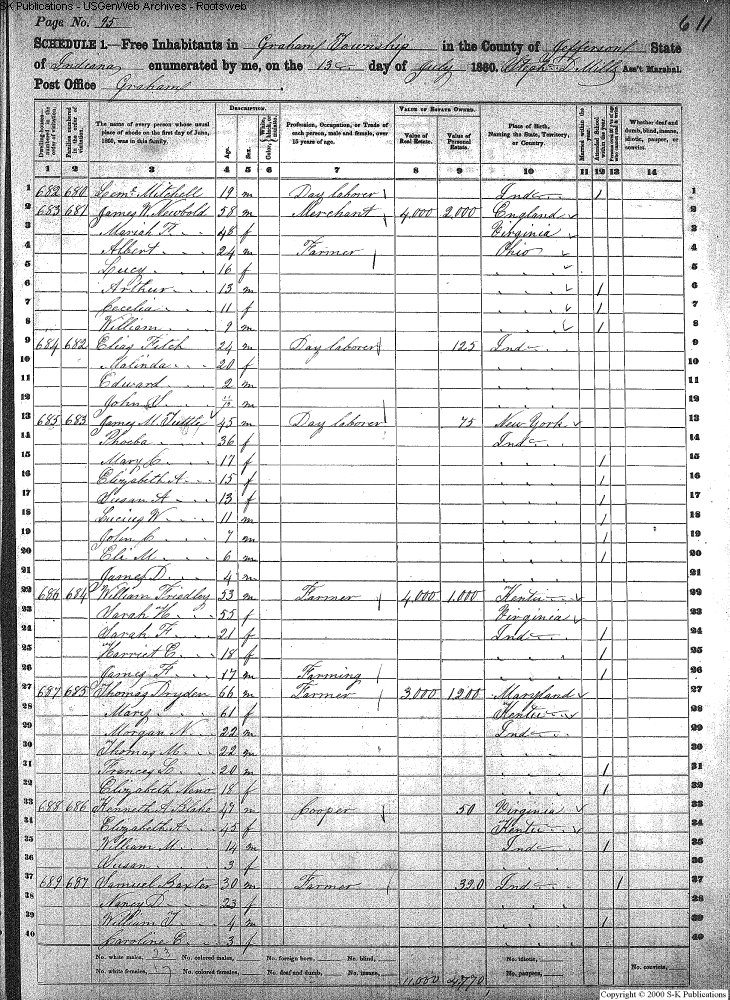 SK Publications - USGenWeb Archives - Rootsweb
Page No. 95
611
SCHEDULE 1.—Free Inhabitants in Graham Township in the County of Jefferson State
of Indiana enumerated by me, on the 13 day of July 1860. Ass't Marshal.
Post Office Graham
Dwelling-houses— numbered in the order of visitation.
Families numbered in the order of visitation.
The name of every person whose usual place of abode on the first day of June, 1860, was in this family.
DESCRIPTION.
Age.
Sex.
Color, White, black, or mulatto.
Profession, Occupation, or Trade of each person, male and female, over 15 years of age.
VALUE OF ESTATE OWNED.
Value of Real Estate.
Value of Personal Estate.
Place of Birth, Naming the State, Territory, or Country.
Married within the year.
Attended School within the year.
Whether deaf and dumb, blind, insane, idiotic, pauper, or convict.
1 2 3 4 5 6 7 8 9 10 11 12 13 14
1 682 680 Mitchell 19 m Day laborer Ind / 1
2 683 681 James W. Newbold 58 m Merchant 4,000 2,000 England 2
3 Mariah F. 48 f Virginia 3
4 Albert 24 m Farmer Ohio 4
5 Lucy 16 f 5
6 Arthur 13 m / 6
7 Cecelia 11 f / 7
8 William 9 m / 8
9 684 682 Elias Fitch 24 m Day laborer 125 Ind 9
10 Malinda 20 f 10
11 Edward 2 m 11
12 John S. m 12
13 685 683 James M. Tuttle 45 m Day laborer 75 New York 13
14 Phoeba 36 f Ind 14
15 Mary C. 17 f / 15
16 Elizabeth A. 15 f / 16
17 Susan A. 13 f / 17
18 Lucius W. 11 m / 18
19 John C. 7 m / 19
20 Eli M. 6 m / 20
21 James D. 4 m 21
22 686 684 William Friedley 53 m Farmer 4,000 1,000 Kentu 22
23 Sarah H. 55 f Virginia 23
24 Sarah F. 21 f Ind / 24
25 Harriet E. 18 f / 25
26 James F. 17 m Farming / 26
27 687 685 Thomas Dryden 66 m Farmer 3,000 1200 Maryland 27
28 Mary 61 f Kentu 28
29 Morgan N. 22 m Ind 29
30 Thomas M. 22 m 30
31 Frances L. 20 m / 31
32 Elizabeth 18 f / 32
33 688 686 Kenneth A. Blake 49 m Cooper 50 Virginia 33
34 Elizabeth A. 45 f Kentu 34
35 William M. 14 m Ind / 35
36 Susan 3 f 36
37 689 687 Samuel Baxter 30 m Farmer 320 Ind / 37
38 Nancy D. 23 f 38
39 William T. 4 m / 39
40 Caroline E. 3 f 40
No. white males, 23 No. colored males, No. foreign born, No. blind, No. idiotic, No. convicts,
No. white females, 17 No. colored females, No. deaf and dumb, No. insane, 11,000 4770 No. paupers,
Copyright © 2000 S-K Publications